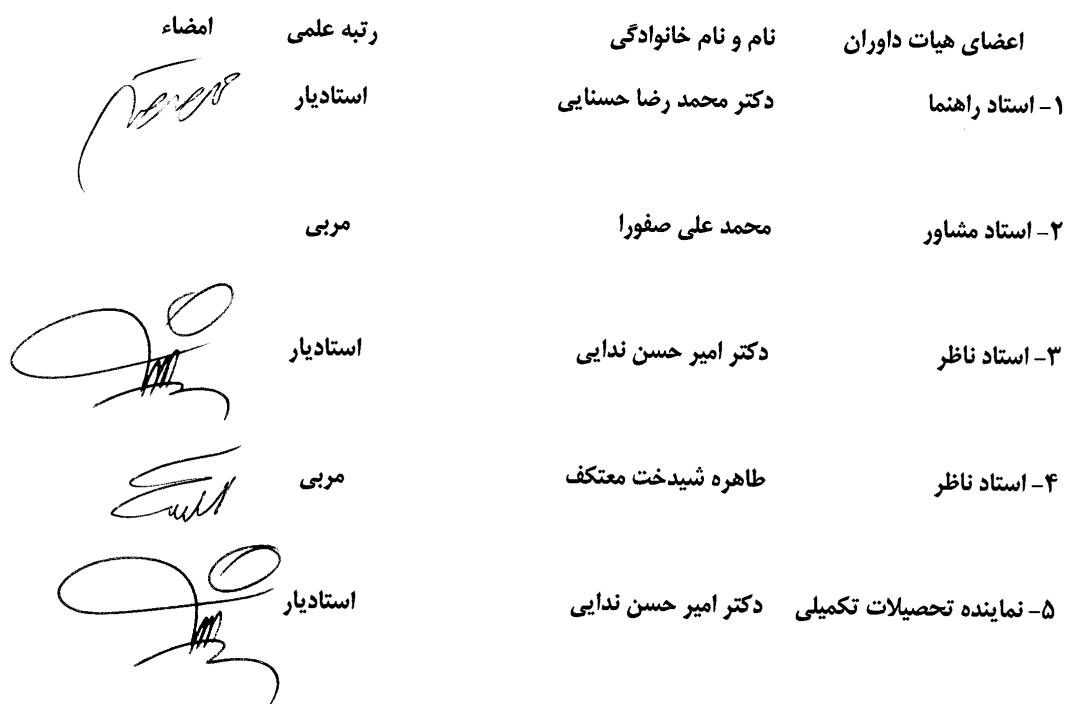 اعضای هیات داوران نام و نام خانوادگی رتبه علمی امضاء
۱- استاد راهنما دکتر محمد رضا حسنایی استادیار
۲- استاد مشاور محمد علی صفورا مربی
۳- استاد ناظر دکتر امیر حسن ندایی استادیار
۴- استاد ناظر طاهره شیدخت معتکف مربی
۵- نماینده تحصیلات تکمیلی دکتر امیر حسن ندایی استادیار